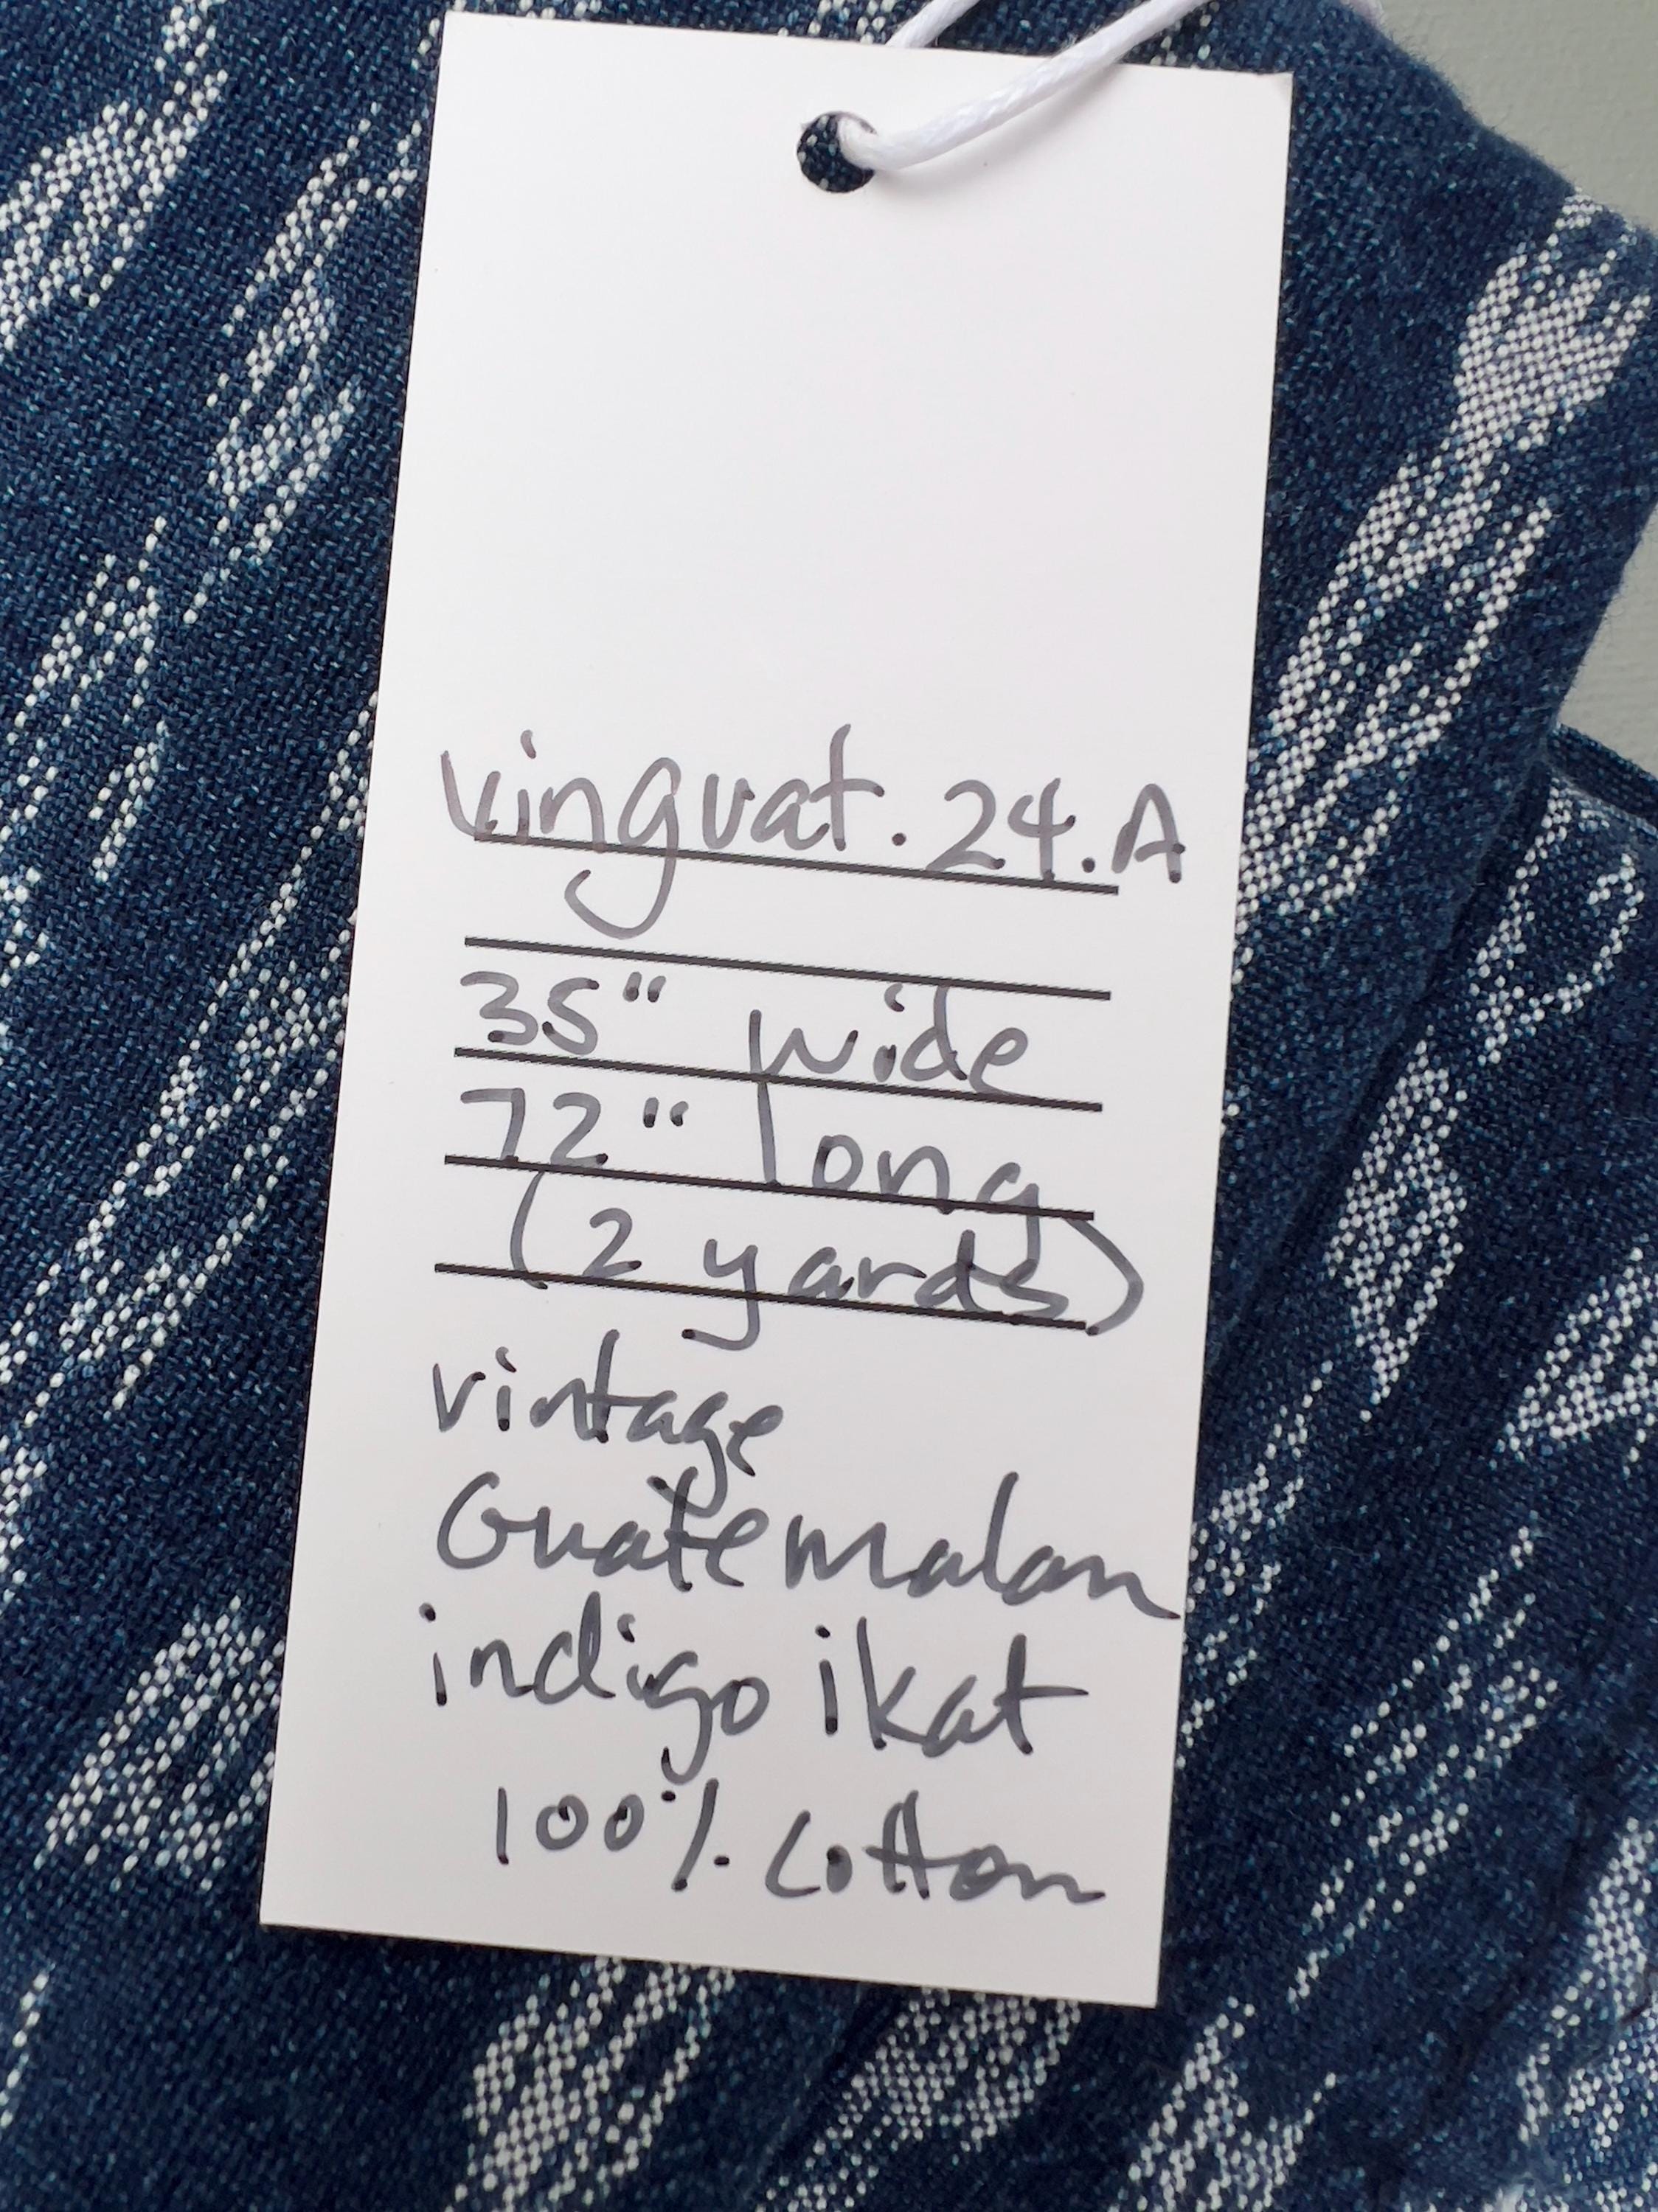 vinguat.24.A
35" wide
72" long
(2 yards)
vintage
Guatemalan
indigo ikat
100% cotton